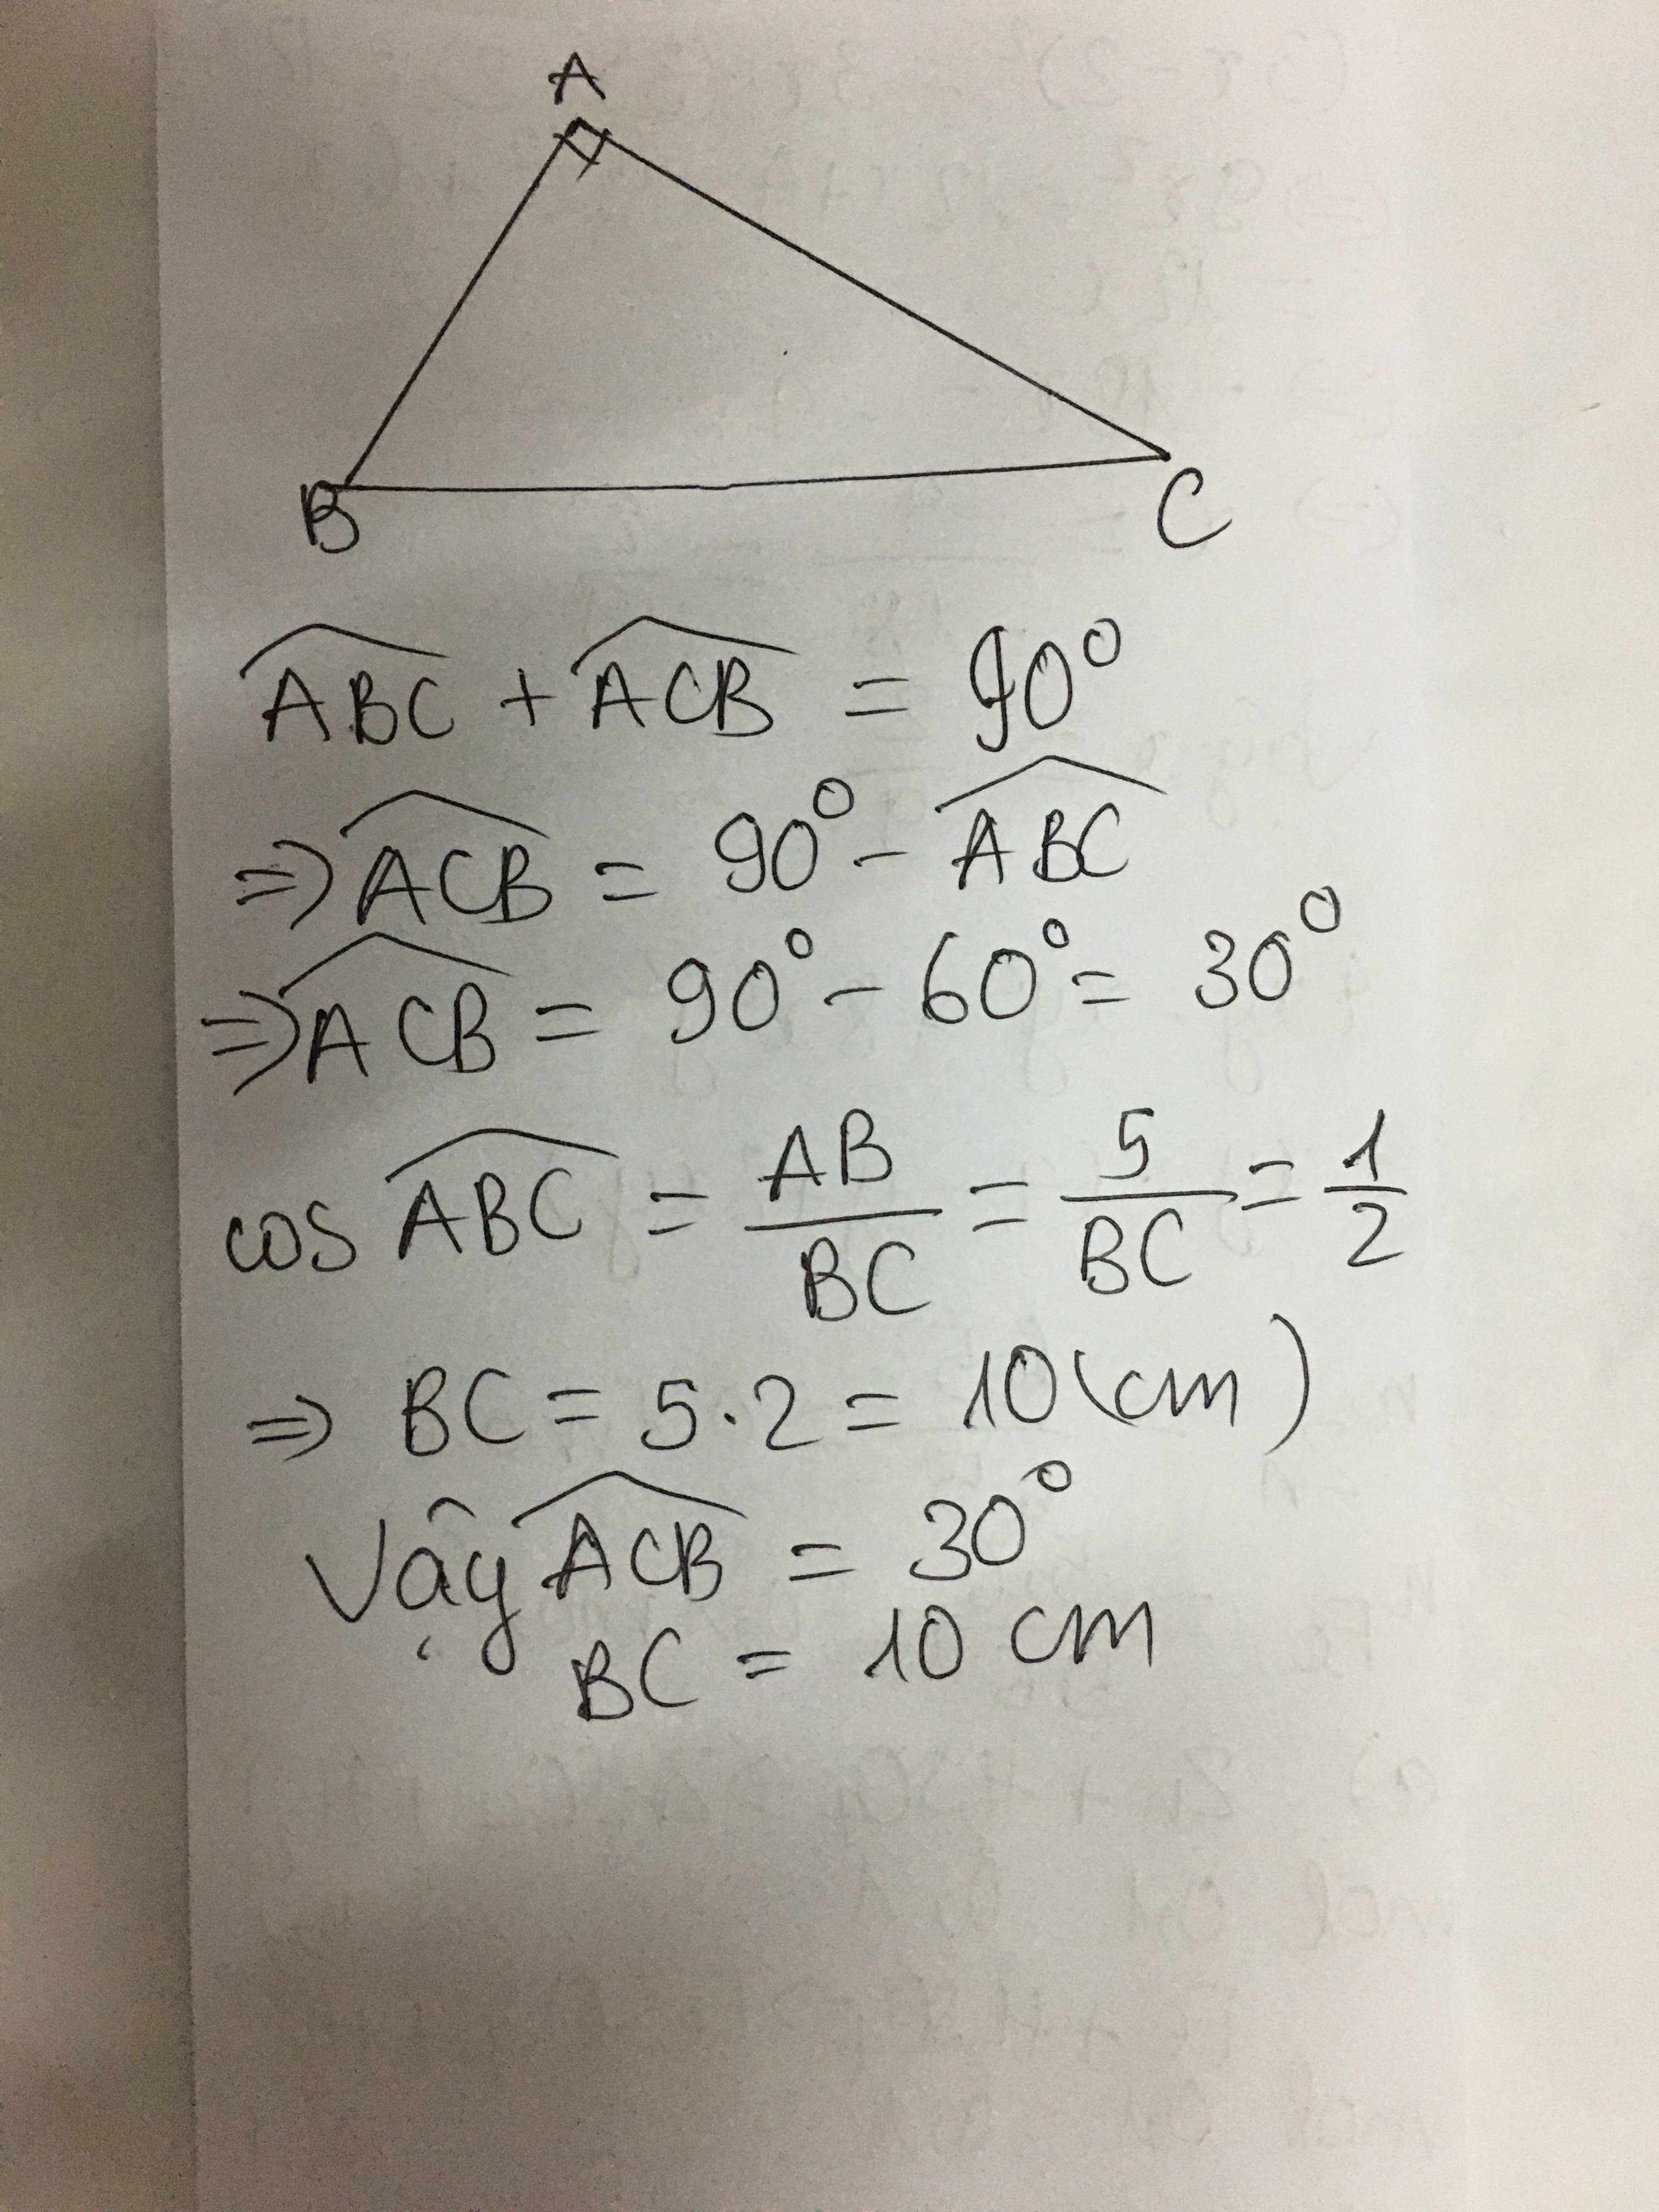 A
B
C
ABC + ACB = 90°
⇒ ACB = 90° - ABC
⇒ ACB = 90° - 60° = 30°
cos ABC = AB/BC = 5/BC = 1/2
⇒ BC = 5.2 = 10 (cm)
Vậy ACB = 30°
BC = 10 cm